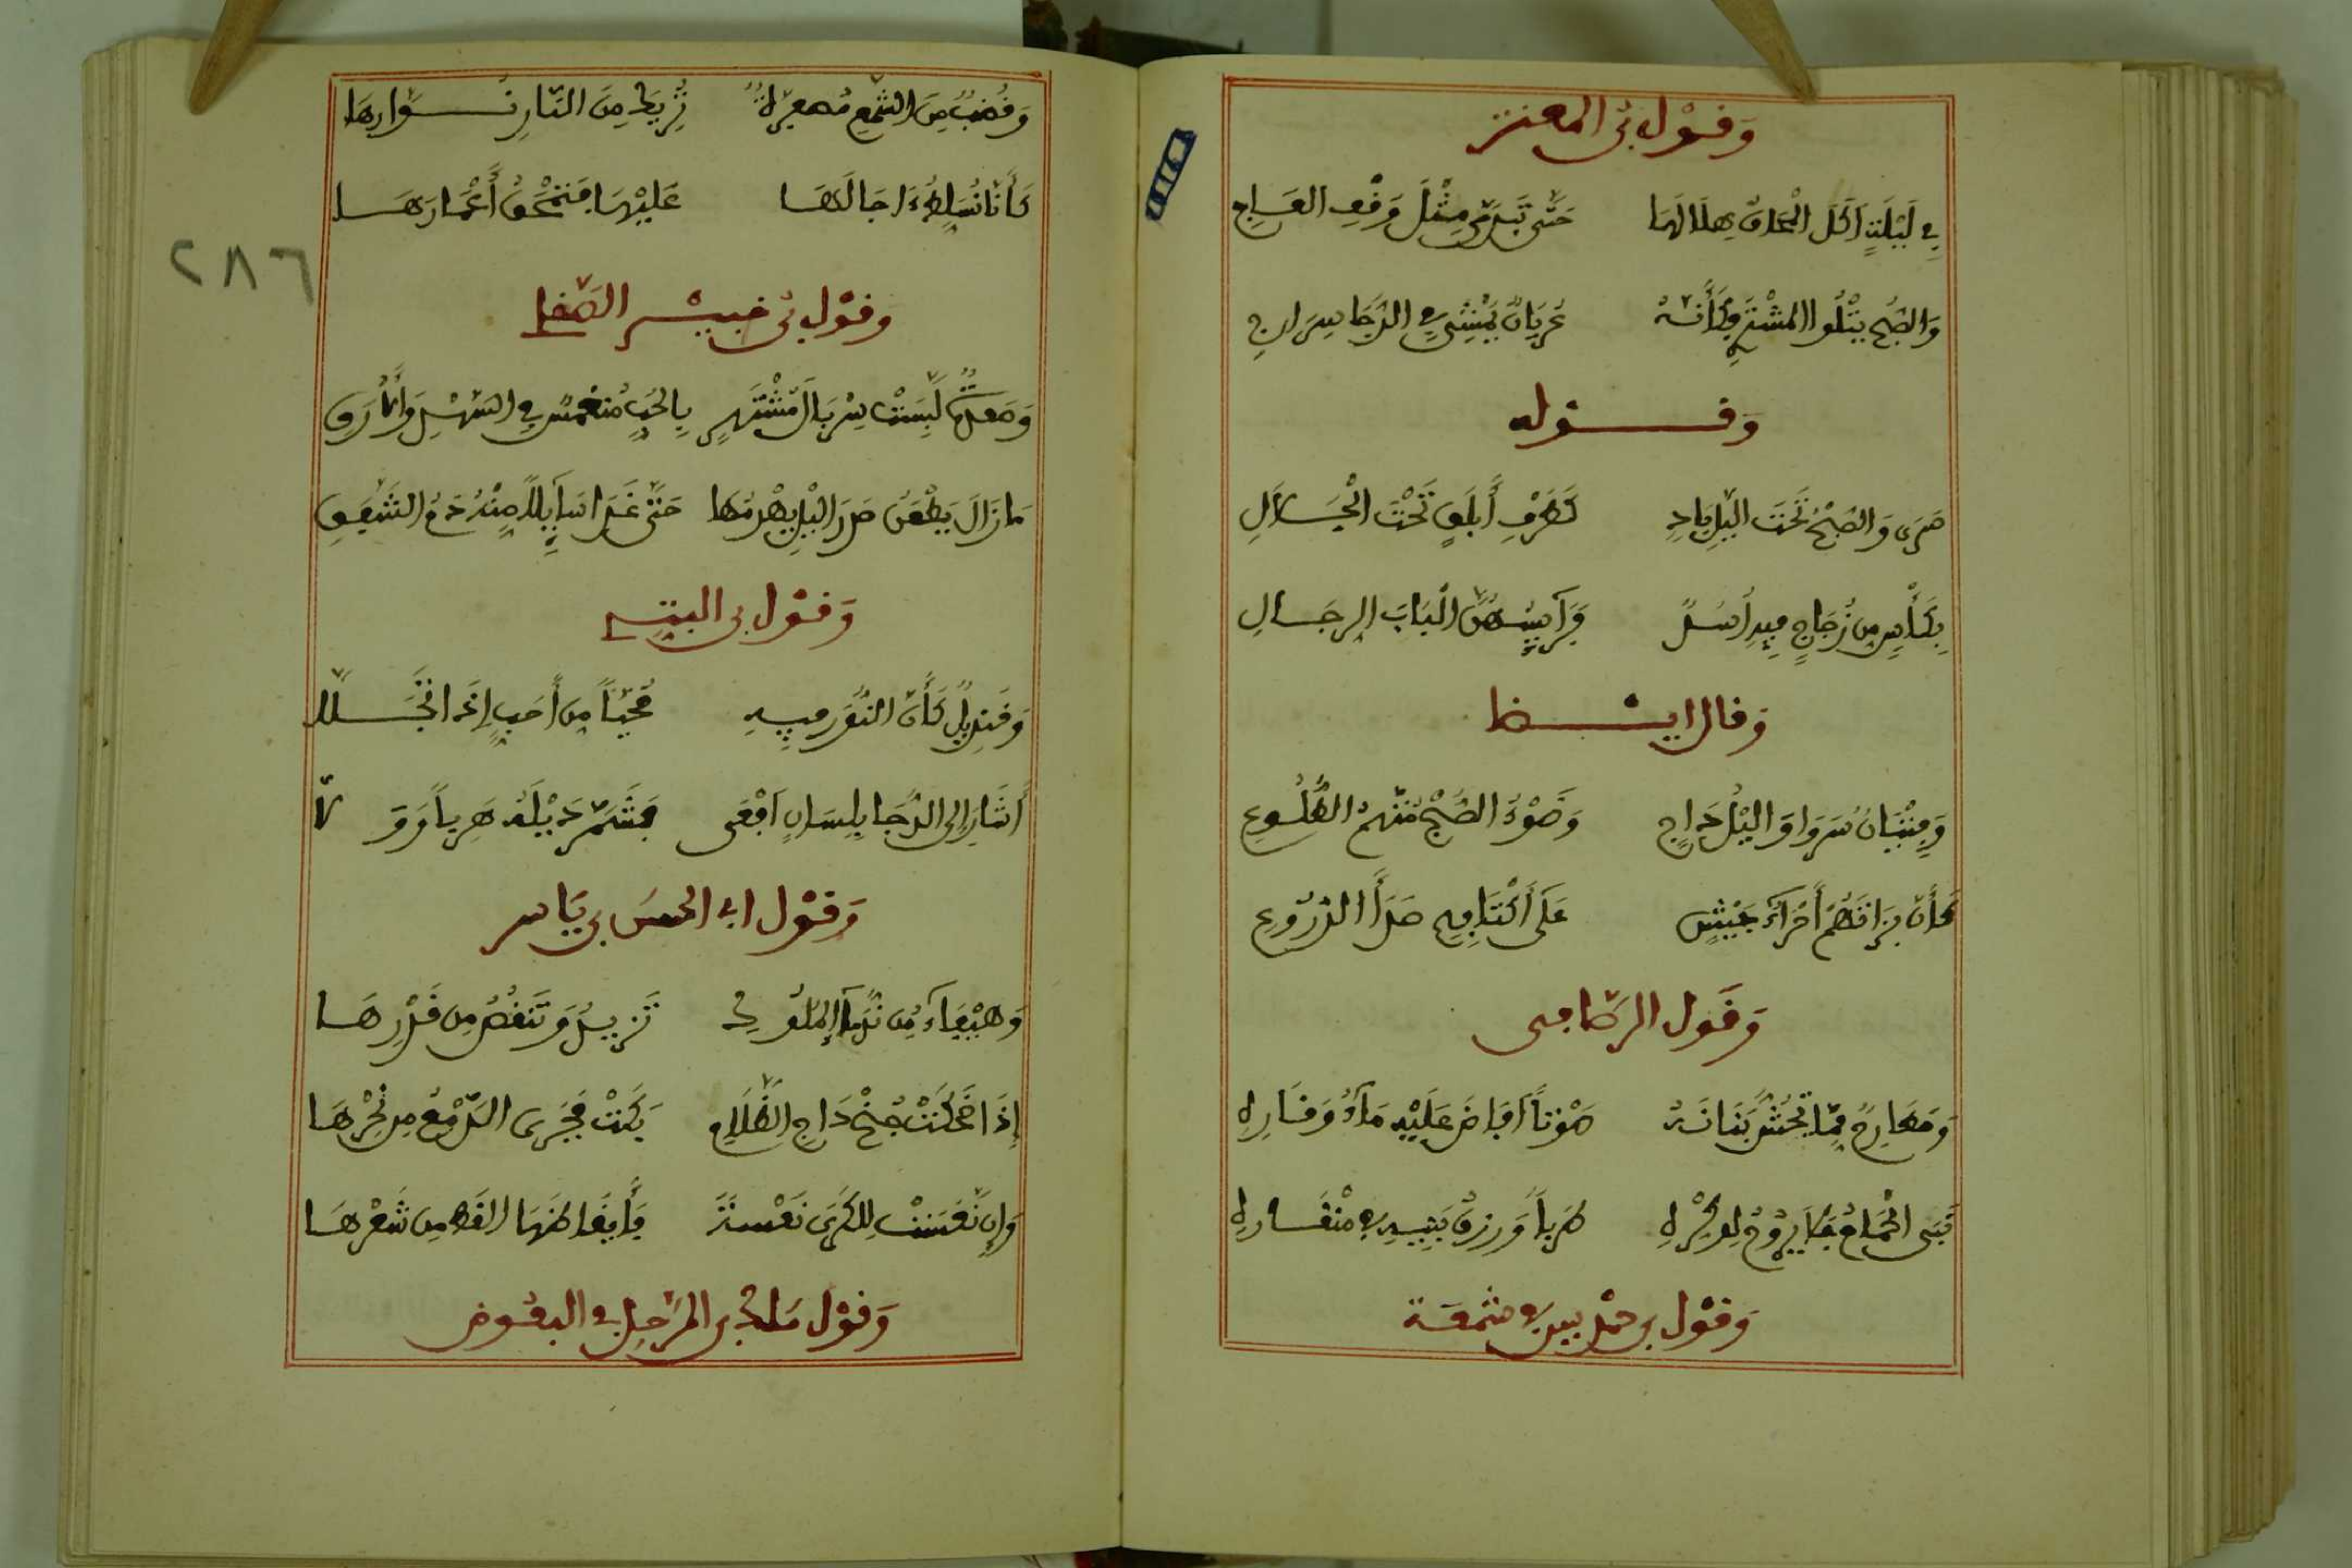 وقول بن المعتز
في ليلة اكل المحاق هلالها حتى تبدى مثل وقف العاج
والصبح يتلوا المشتري وكأنه عريان يمشي في الدجا بسراج
وقوله
سرى والصبح تحت الليل باد كطرف أبلق تحت الجلال
بكأس من زجاج فيه أسد فرآيسهن الباب الرجال
وقال ايضا
وفتيان سروا والليل داج وضوء الصبح متهم الطلوع
كأن بزاتهم أمراء جيش على أكتافهم صدأ الدروع
وقول الرصافي
ومهارم مما تحش بنانه صوتا افاض عليه ماء وقاره
تبكي
وقول بن حمديس في شمعة
وقضب من الشمع مصفرة تريك من النار نوارها
كأنا نسلط ءاجالها عليها فتمحق أعمارها
وقول بن خميس الصقلي
لبست سربال مشتهر بالحب منغمس في السهل والأرق
ما زال يطعن صدر الليل حتى غدا سآيلا منه دم الشفق
وقول بن النبيه
وقنديل كأن النور فيه محيا من أحب إذا تجلا
أشار إلى الدجا بلسان افعى فشمر ذيله هربا وولا
وقول ابي الحسن بن ياسر
وهيفاء من ندماء الملوك تزيد وتنقص من قدرها
إذا ضحكت جنح داج الظلام بكت فجرى الدمع من نحرها
وان نعست للكرى نعسة فأيقاظها القط من شعرها
وقول مالك بن المرحل في البعوض
٢٨٦